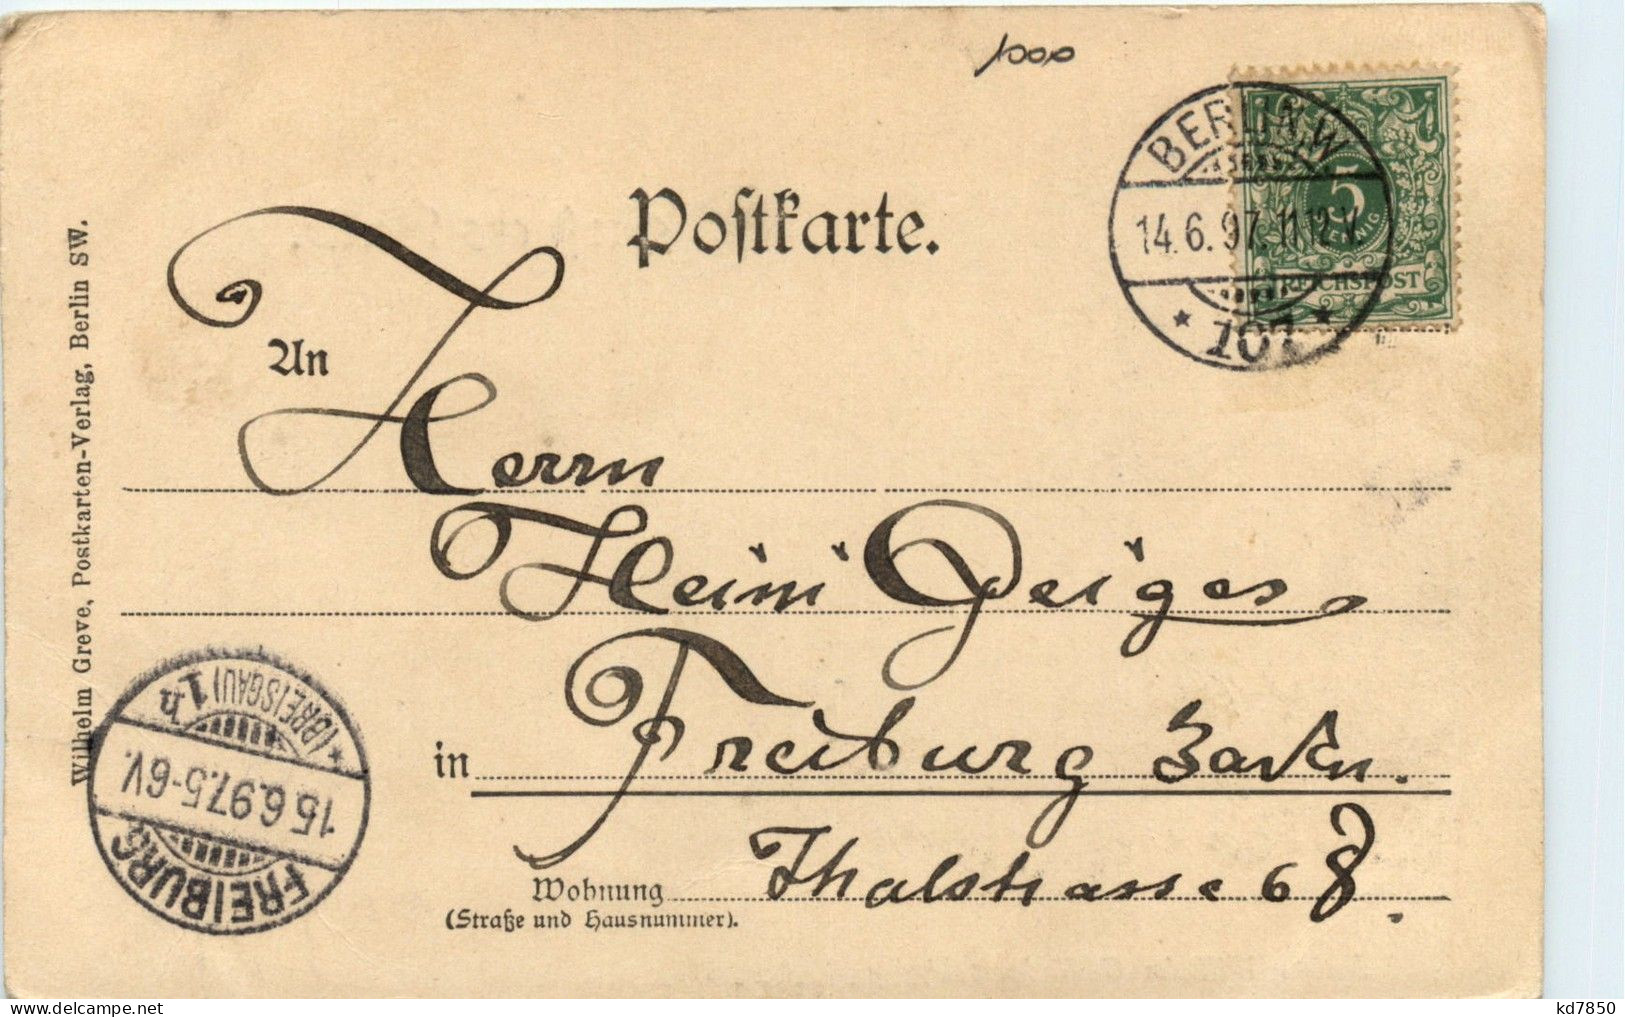 1000
BERLIN.W
14.6.97.11.12.V.
* 107 *
5
PFENNIG
REICHSPOST
Postkarte.
An
Herrn
Heini Geiges
in Freiburg Baden.
Wohnung Thalstrasse 68.
(Straße und Hausnummer).
Wilhelm Greve, Postkarten-Verlag, Berlin SW.
FREIBURG
15.6.97.5-6V.
* (BREISGAU) 1h
kd7850